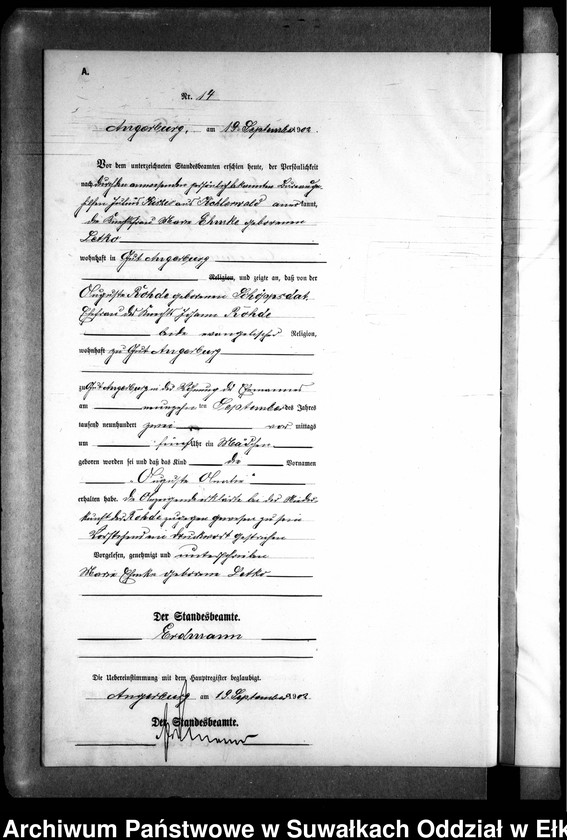 A.
Nr. 14
Angerburg, am 19. September 1902.
Vor dem unterzeichneten Standesbeamten erschien heute, der Persönlichkeit
nach durch den anwesenden persönlich bekannten
Julius und anerkannt,
die Knechtsfrau Marie Ehmke geborenen
Letko
wohnhaft in Gut Angerburg
Religion, und zeigte an, daß von der
Auguste Rohde geborenen Schöppsdat,
Ehefrau des Knechts Johann Rohde
beide evangelischer Religion,
wohnhaft zu Gut Angerburg
zu Gut Angerburg in der Wohnung des Ehemannes
am neunzehn ten September des Jahres
tausend neunhundert zwei vor mittags
um fünf Uhr ein Mädchen
geboren worden sei und daß das Kind die Vornamen
Auguste
erhalten habe. Die Anzeigende erklärte bei der Nieder-
kunft der Rohde zugegen gewesen zu sein
Vorstehend ein Druckwort gestrichen
Vorgelesen, genehmigt und unterschrieben
Marie Ehmke geborene Letko
Der Standesbeamte.
Erdmann
Die Uebereinstimmung mit dem Hauptregister beglaubigt.
Angerburg am 19. September 1902.
Der Standesbeamte.
Erdmann
Archiwum Państwowe w Suwałkach Oddział w Ełk